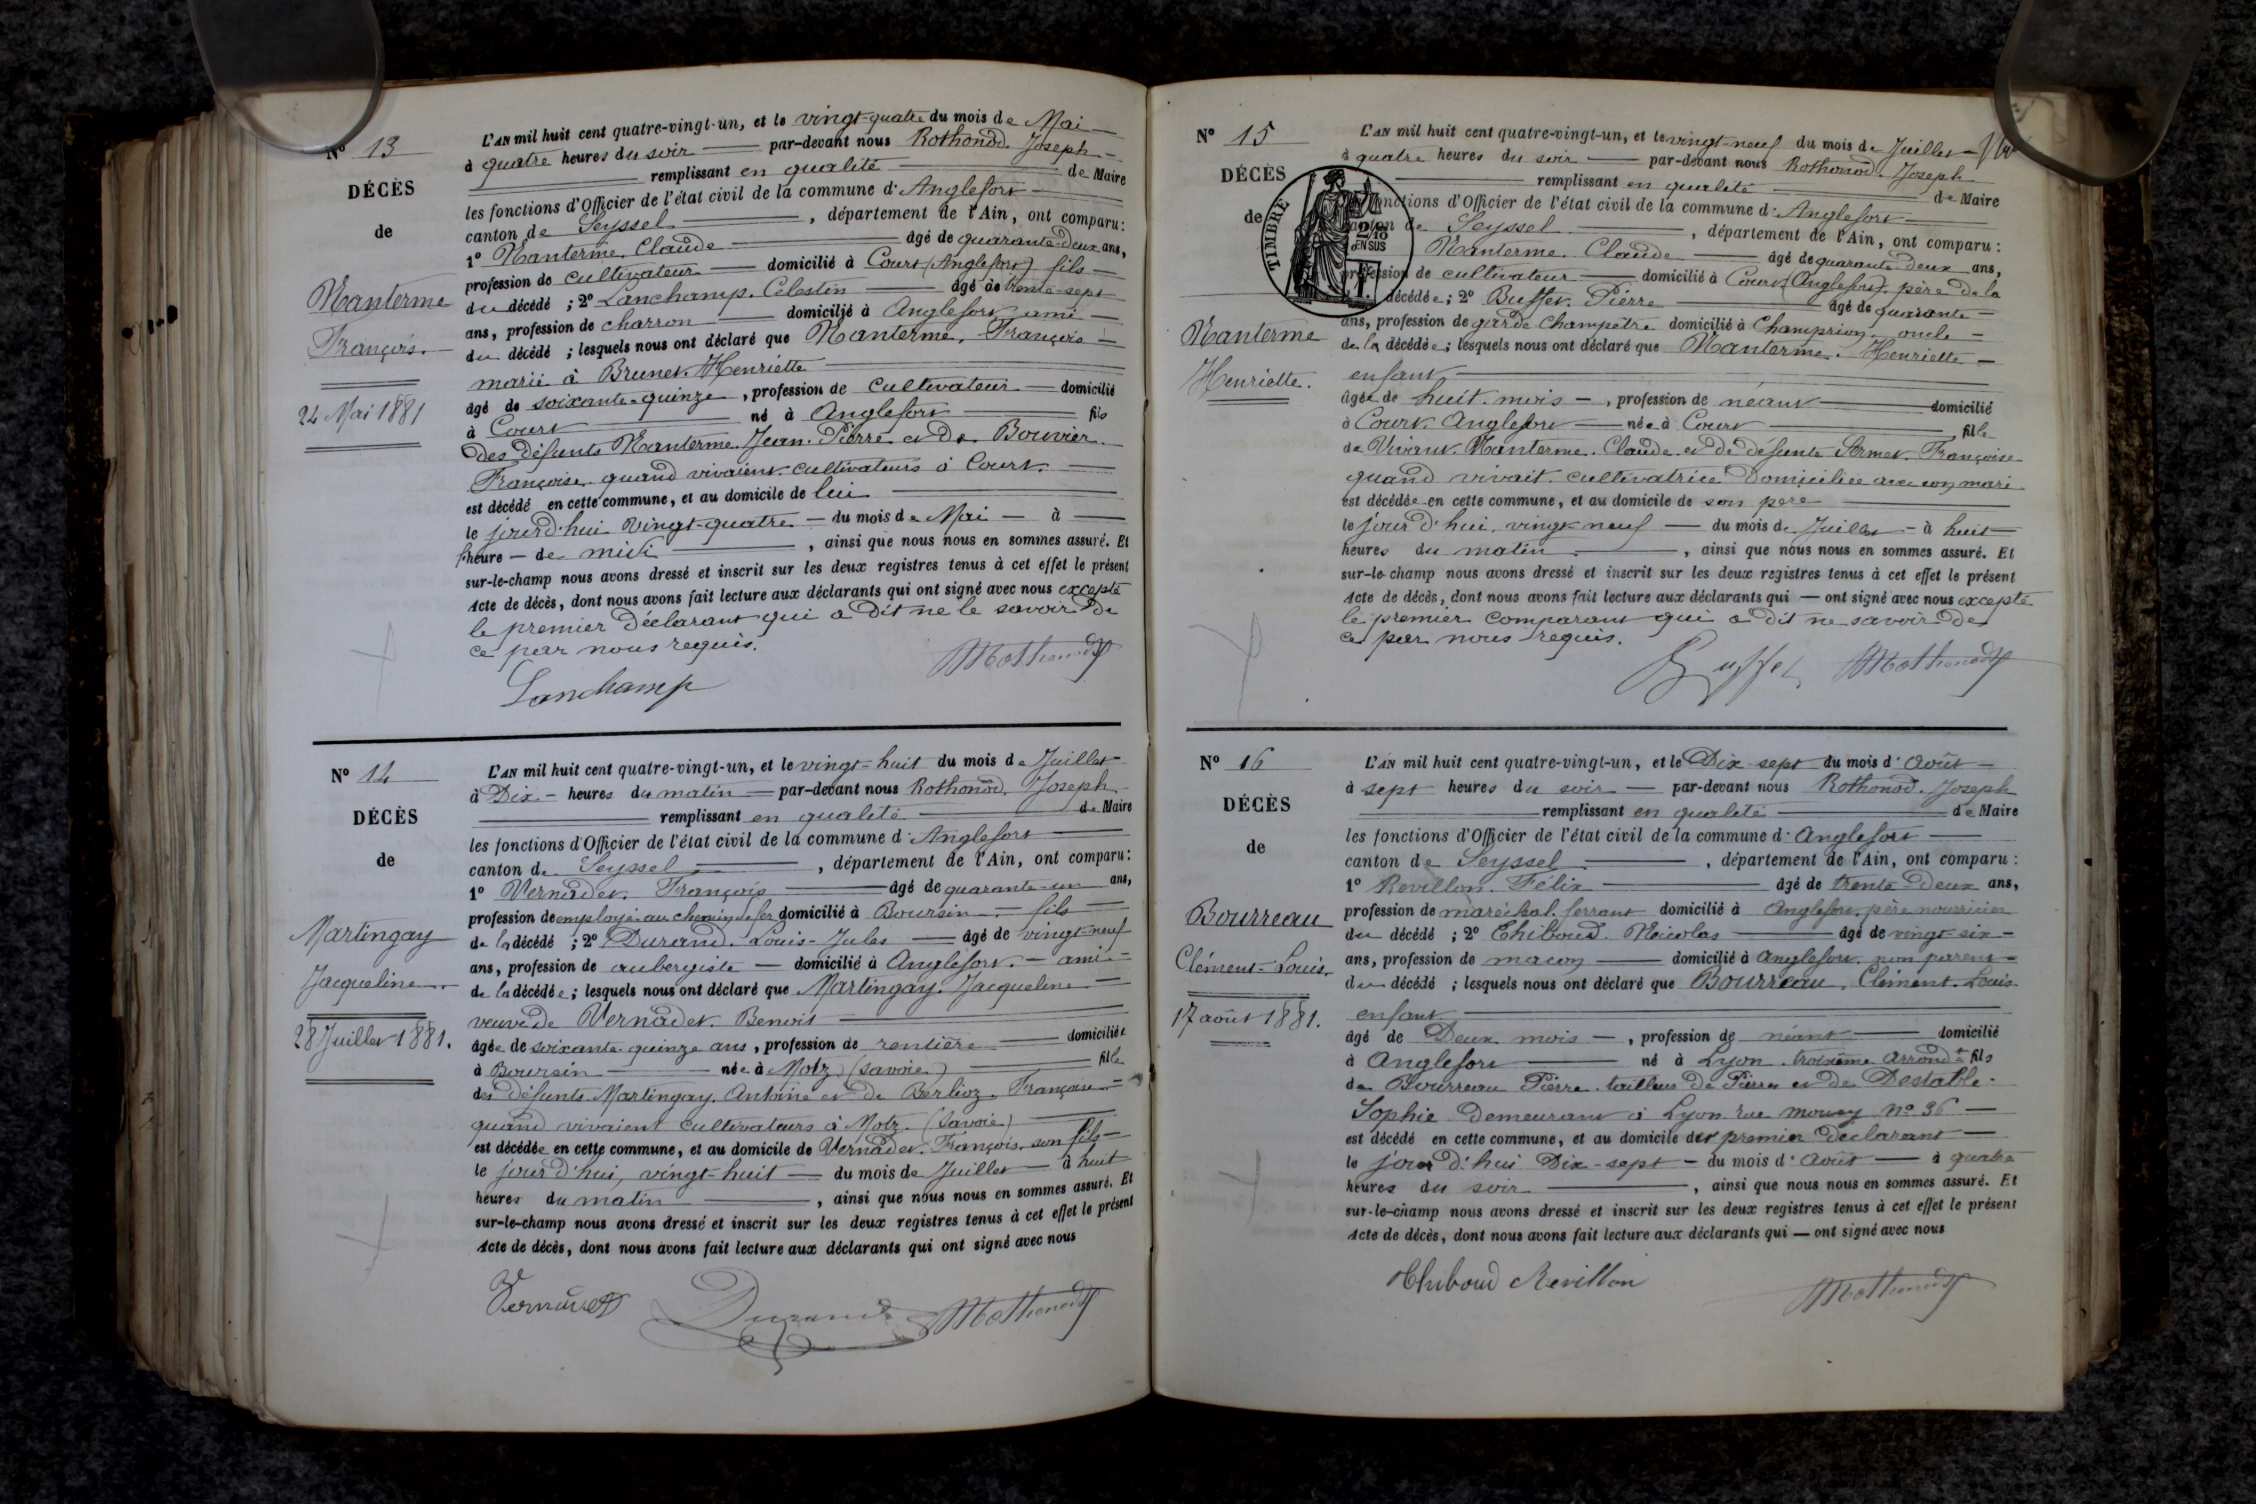 N° 13
DÉCÈS
de
Nanterme
François.
24 Mai 1881
L'AN mil huit cent quatre-vingt-un, et le vingt-quatre du mois de Mai
à quatre heures du soir par-devant nous Rothonod. Joseph
remplissant en qualité de Maire
les fonctions d'Officier de l'état civil de la commune d'Anglefort
canton de Seyssel, département de l'Ain, ont comparu:
1° Nanterme. Claude âgé de quarante-deux ans,
profession de cultivateur domicilié à Court (Anglefort) fils
du décédé ; 2° Lanchamp. Célestin âgé de trente-sept
ans, profession de charron domicilié à Anglefort ami
du décédé ; lesquels nous ont déclaré que Nanterme. François
marié à Brunet. Henriette
âgé de soixante-quinze, profession de cultivateur domicilié
à Court né à Anglefort fils
des défunts Nanterme. Jean-Pierre et de Bouvier.
Françoise quand vivaient cultivateurs à Court.
est décédé en cette commune, et au domicile de lui
le jourd'hui vingt-quatre du mois de Mai à
heure de midi, ainsi que nous nous en sommes assuré. Et
sur-le-champ nous avons dressé et inscrit sur les deux registres tenus à cet effet le présent
Acte de décès, dont nous avons fait lecture aux déclarants qui ont signé avec nous excepté
le premier déclarant qui a dit ne le savoir de
ce par nous requis.
Lanchamp
N° 14
DÉCÈS
de
Martingay
Jacqueline.
28 Juillet 1881.
L'AN mil huit cent quatre-vingt-un, et le vingt-huit du mois de Juillet
à Dix heures du matin par-devant nous Rothonod. Joseph
remplissant en qualité de Maire
les fonctions d'Officier de l'état civil de la commune d'Anglefort
canton de Seyssel, département de l'Ain, ont comparu:
1° Vernadet. François âgé de quarante-un ans,
profession de employé au chemin de fer domicilié à Boursin fils
de la décédé ; 2° Durand. Louis-Jules âgé de vingt-neuf
ans, profession de aubergiste domicilié à Anglefort. ami
de la décédée ; lesquels nous ont déclaré que Martingay. Jacqueline
veuve de Vernadet. Benoit
âgée de soixante quinze ans, profession de rentière domiciliée
à Boursin née à Motz (Savoie) fille
des défunts Martingay. Antoine et de Berlioz. Françoise
quand vivaient cultivateurs à Motz. (Savoie)
est décédée en cette commune, et au domicile de Vernadet. François. son fils
le jourd'hui, vingt-huit du mois de Juillet à huit
heures du matin, ainsi que nous nous en sommes assuré. Et
sur-le-champ nous avons dressé et inscrit sur les deux registres tenus à cet effet le présent
Acte de décès, dont nous avons fait lecture aux déclarants qui ont signé avec nous
Vernadet Durand
N° 15
DÉCÈS
de
TIMBRE
2/10
EN SUS
Nanterme
Henriette.
L'AN mil huit cent quatre-vingt-un, et le vingt-neuf du mois de Juillet
à quatre heures du soir par-devant nous Rothonod. Joseph
remplissant en qualité de Maire
fonctions d'Officier de l'état civil de la commune d'Anglefort
canton de Seyssel, département de l'Ain, ont comparu:
Nanterme. Claude âgé de quarante-deux ans,
profession de cultivateur domicilié à Court (Anglefort). père de la
décédée; 2° Buffet. Pierre âgé de quarante
ans, profession de garde champêtre domicilié à Champrion oncle
de la décédée; lesquels nous ont déclaré que Nanterme. Henriette
enfant
âgée de huit mois, profession de néant domicilié
à Court. Anglefort née à Court fille
de Vivant. Nanterme. Claude et de défunte Françoise
quand vivait cultivatrice domiciliée avec son mari
est décédée en cette commune, et au domicile de son père
le jour d'hui, vingt neuf du mois de Juillet à huit
heures du matin, ainsi que nous nous en sommes assuré. Et
sur-le-champ nous avons dressé et inscrit sur les deux registres tenus à cet effet le présent
Acte de décès, dont nous avons fait lecture aux déclarants qui ont signé avec nous excepté
le premier comparant qui a dit ne savoir de
ce par nous requis.
Buffet
N° 16
DÉCÈS
de
Bourreau
Clément-Louis.
17 août 1881.
L'AN mil huit cent quatre-vingt-un, et le Dix-sept du mois d'Août
à sept heures du soir par-devant nous Rothonod. Joseph
remplissant en qualité de Maire
les fonctions d'Officier de l'état civil de la commune d'Anglefort
canton de Seyssel, département de l'Ain, ont comparu:
1° Revillon. Félix âgé de trente deux ans,
profession de maréchal ferrant domicilié à Anglefort. père nourricier
du décédé ; 2° Thiboud. Nicolas âgé de vingt-six
ans, profession de maçon domicilié à Anglefort. non parent
du décédé ; lesquels nous ont déclaré que Bourreau. Clément. Louis
enfant
âgé de Deux mois, profession de néant domicilié
à Anglefort né à Lyon. troisième arrondt fils
de Bourreau Pierre. tailleur de Pierre et de Destable.
Sophie demeurant à Lyon rue moncey N° 36
est décédé en cette commune, et au domicile du premier déclarant
le jour d'hui Dix-sept du mois d'Août à quatre
heures du soir, ainsi que nous nous en sommes assuré. Et
sur-le-champ nous avons dressé et inscrit sur les deux registres tenus à cet effet le présent
Acte de décès, dont nous avons fait lecture aux déclarants qui ont signé avec nous
Thiboud Revillon